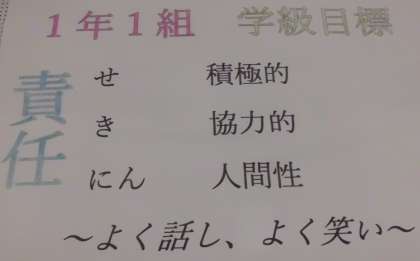 1年1組 学級目標
責任
せ 積極的
き 協力的
にん 人間性
～よく話し、よく笑い～